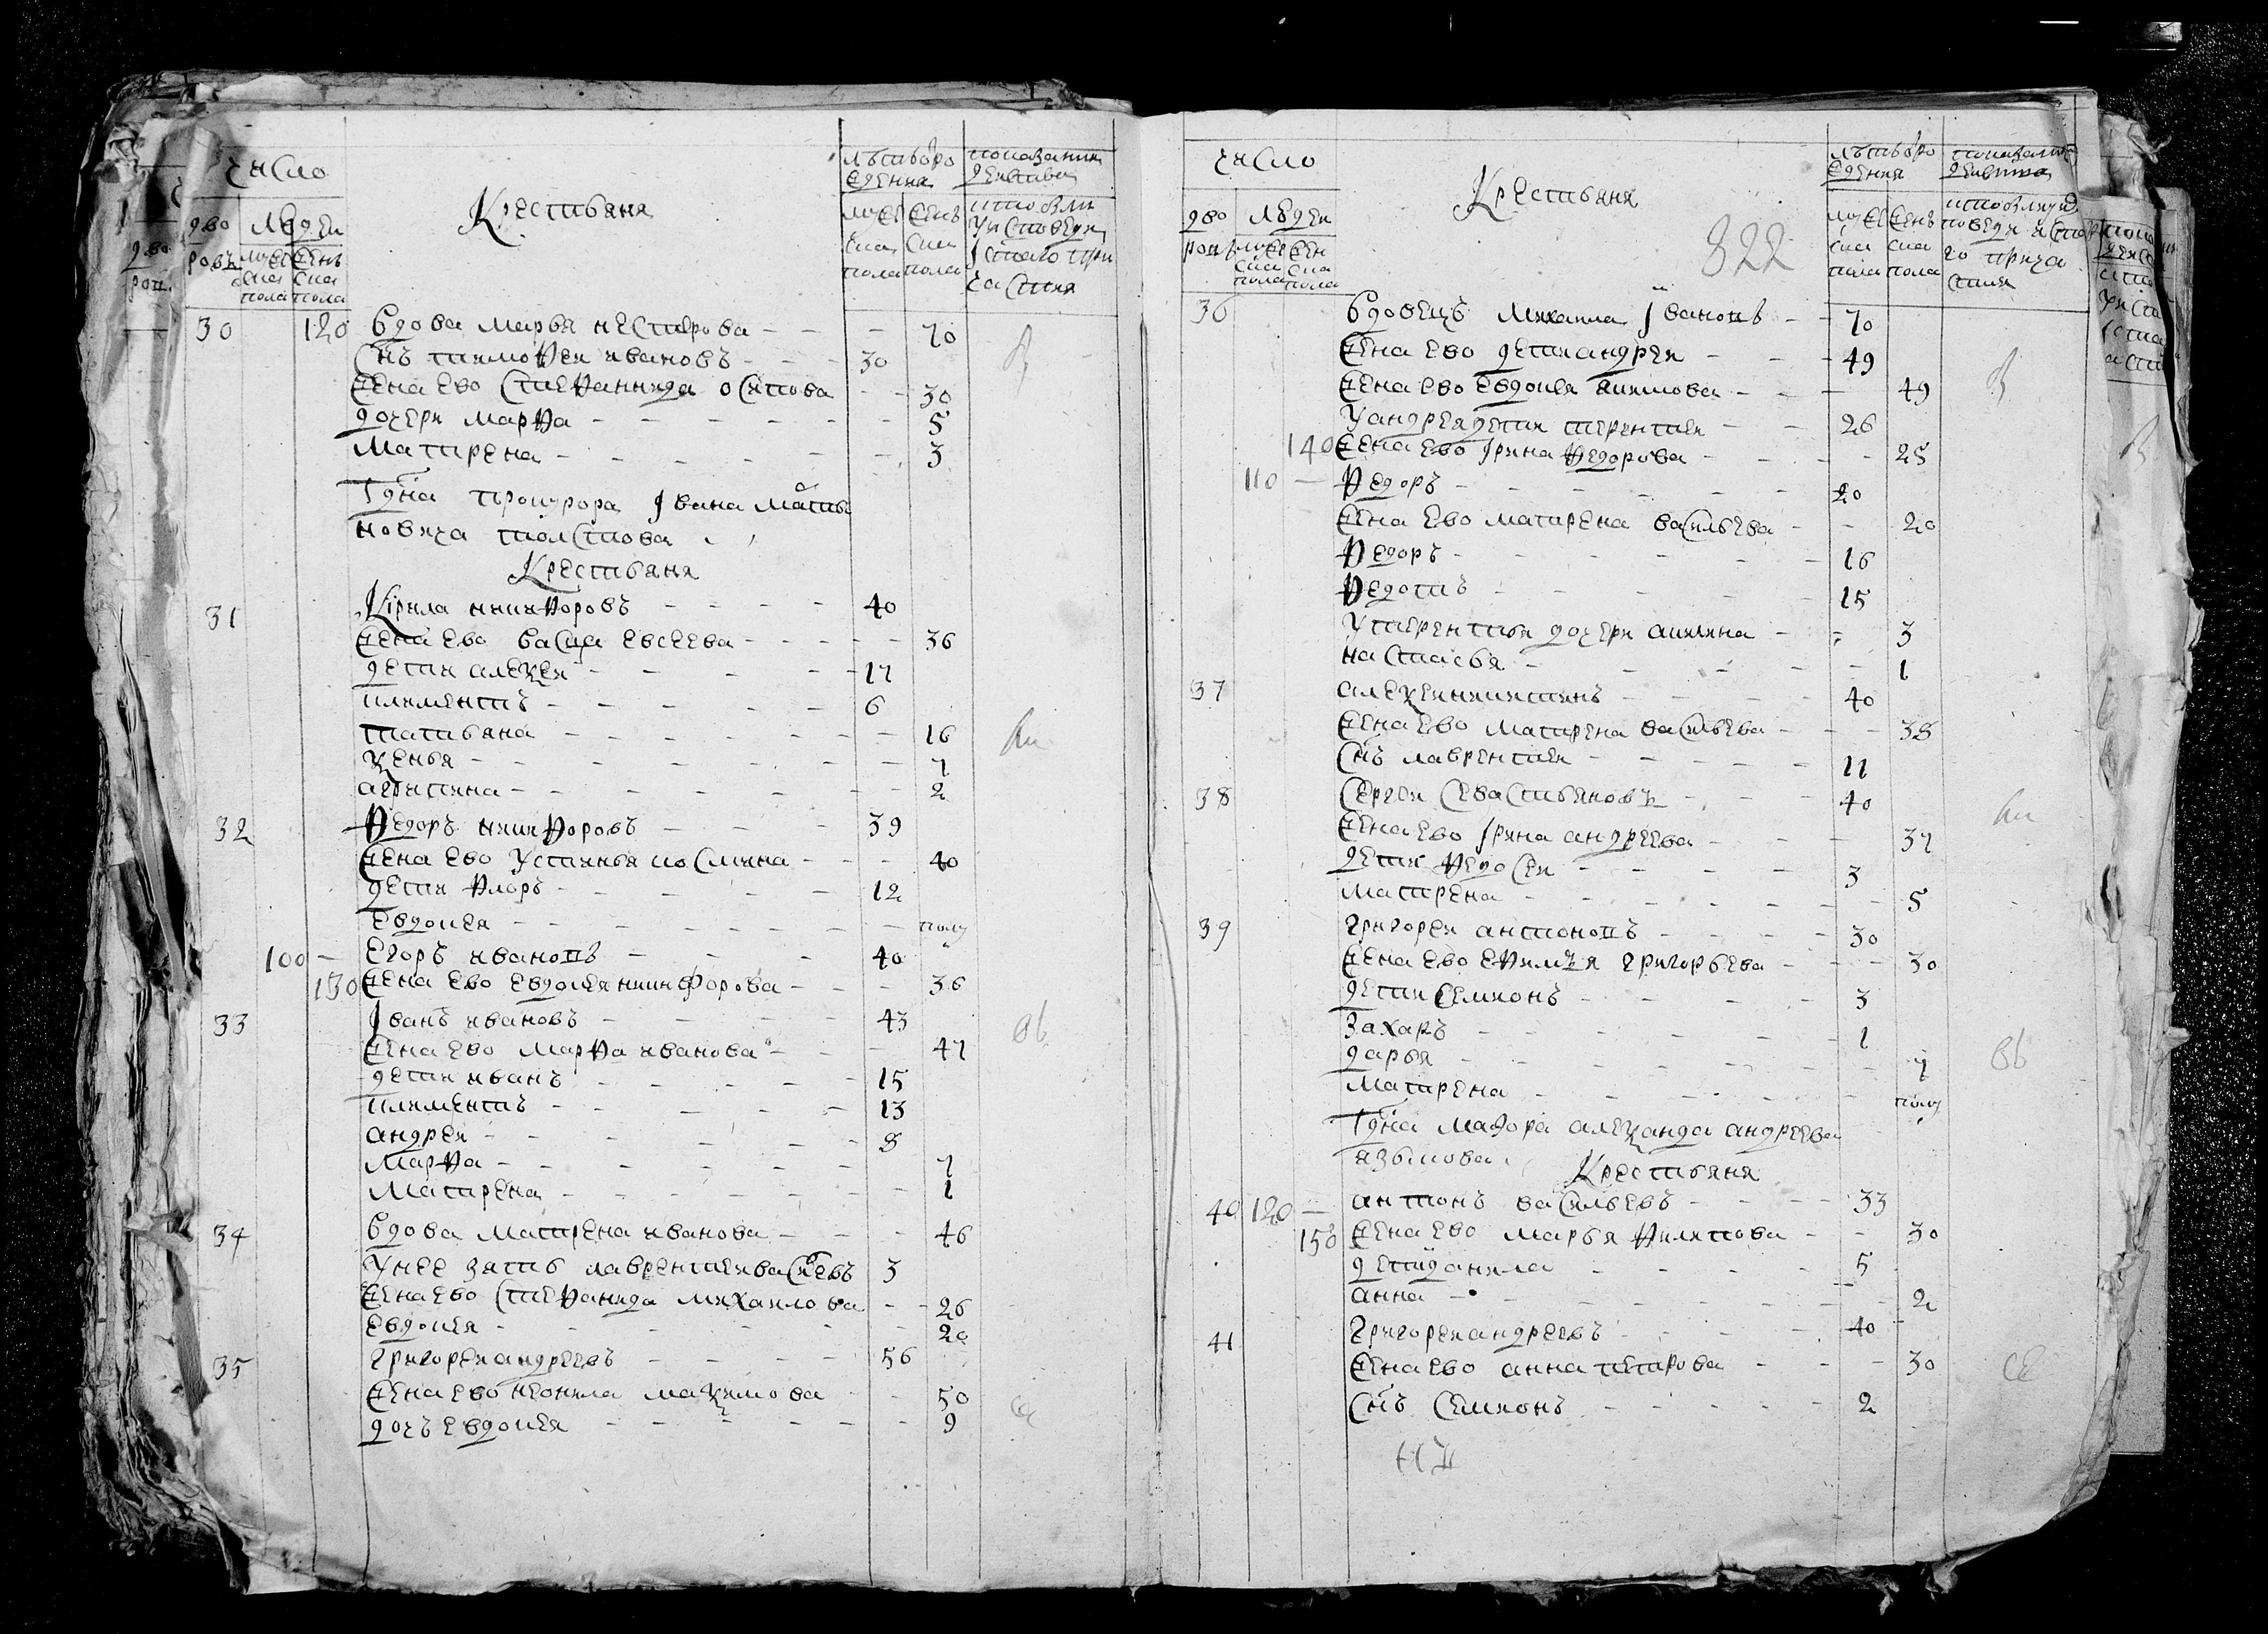 число
Крестьяня
лѣтъ о ро
жденїя
показанїи
действа
дво
ровъ
людеи
мужес
ска
пола
женъ
ска
пола
мужес
ска
пола
женъ
ска
пола
кто былъ
у исповеди
і стаго при
частия
30 120 Вдова марья нестерова - - - 70
Снъ тимофеи ивановъ - - - 30
жена ево стефаннида осипова - - 30
дочери марфа - - - - - 5
матрена - - - - - 3
Гдна прокурора Івана марты
новича толстова
Крестьяня
31 Кірила никифоровъ - - - - 40
жена ево васса евсеева - - - - 36
дети алеѯеи - - - - 17
климентъ - - - - - 6
татьяна - - - - - 16
ѯенья - - - - - 7
агрипина - - - - - 2
32 Федоръ никифоровъ - - - 39
жена ево устинья космина - - - 40
дети флоръ - - - - 12
евдокея - - - - - полу
100 - егоръ ивановъ - - - 40
130 жена ево евдокея никифорова - - - 36
33 Іванъ ивановъ - - - - 43
жена ево марфа иванова - - - 47
дети иванъ - - - - 15
климентъ - - - - - 13
андреи - - - - - 8
марфа - - - - - 7
матрена - - - - - 1
34 Вдова матрена иванова - - - - 46
у нее зять лаврентеи васевъ 3
жена ево стефанида михаилова - - 26
евдокея - - - - - 20
35 григореи андреевъ - - - - 56
жена ево неонила маѯимова - - 50
дочь евдокея - - - - - 9
число
Крестьяня
822
лѣтъ о ро
жденїя
показанїи
действа
дво
ровъ
людеи
мужес
ска
пола
жен
ска
пола
мужес
ска
пола
женъ
ска
пола
36 Вдовецъ михаила Івановъ - - 70
жена ево дети андреи - - - 49
жена ево евдокея акимова - - - 49
у андрея дети терентеи - - 26
140 жена ево Ірина федорова - - - - 25
110 - Федоръ - - - - - 20
жена ево матрена васильева - - 20
Федоръ - - - - - 16
Федотъ - - - - - 15
у терентья дочери акилина - - 3
настасья - - - - - 1
37 алеѯеи никитинъ - - - - 40
жена ево матрена васильева - - - 38
Снъ лаврентеи - - - - - 11
38 Сергеи севастьяновъ - - - 40
жена ево Ірина андреева - - - 37
дети федосеи - - - - 3
матрена - - - - - 5
39 григореи антоновъ - - - - 30
жена ево ефимья григорьева - - - 30
дети семионъ - - - - 3
захаръ - - - - - 1
дарья - - - - - 7
матрена - - - - - полу
Гдна маиора алеѯанда андреева
языкова Крестьяня
40 120 - антонъ васильевъ - - - - 33
150 жена ево марья филипова - - 30
дети данила - - - - 5
анна - - - - - 2
41 григореи андреевъ - - - - 40
жена ево анна петрова - - - - 30
Снъ семионъ - - - - - 2